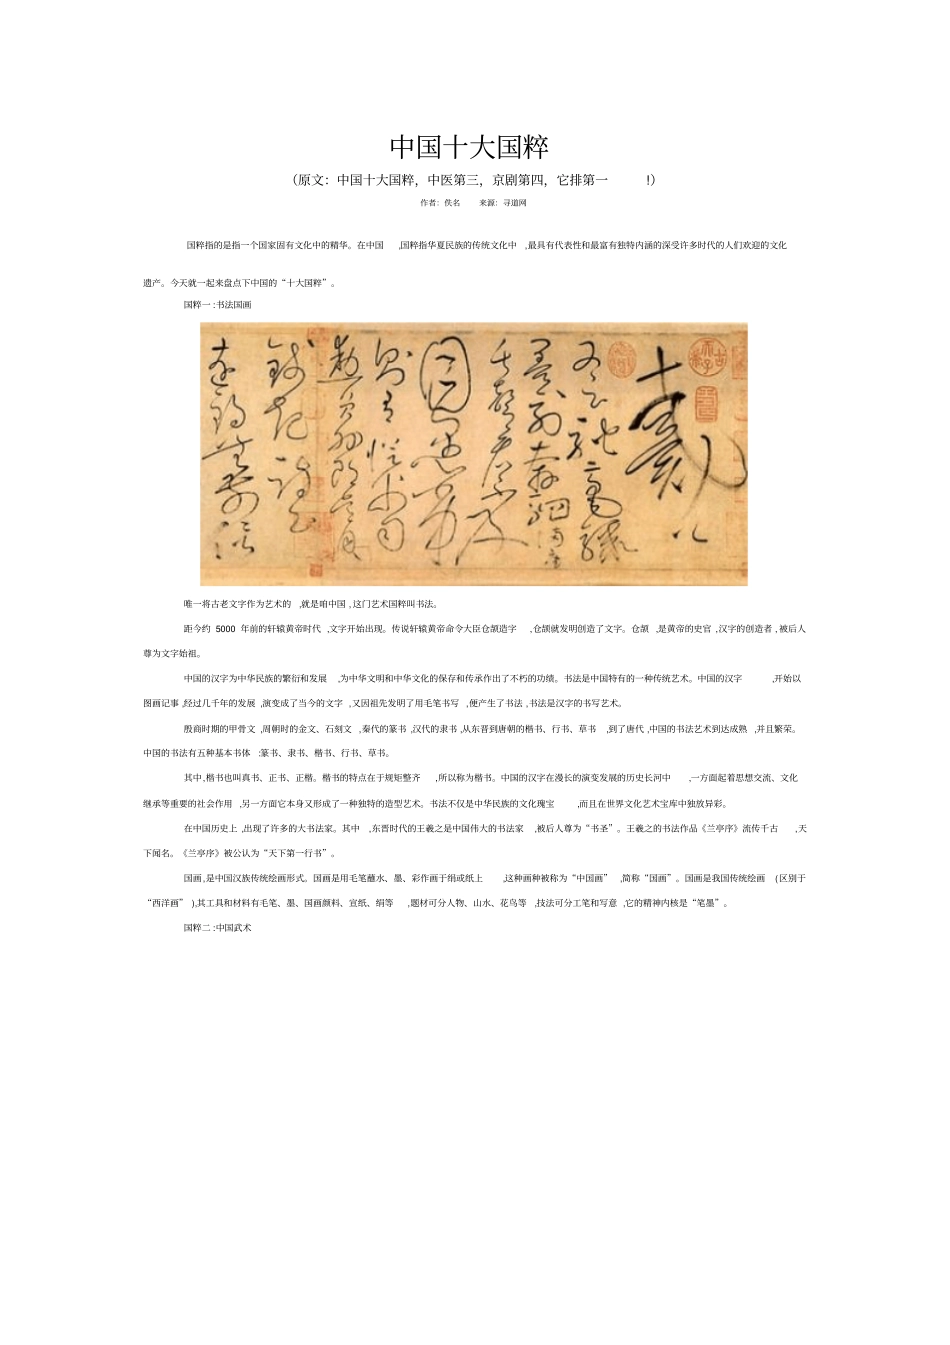 中国十大国粹
（原文：中国十大国粹，中医第三，京剧第四，它排第一！）
作者：佚名 来源：寻道网
国粹指的是指一个国家固有文化中的精华。在中国 ,国粹指华夏民族的传统文化中 ,最具有代表性和最富有独特内涵的深受许多时代的人们欢迎的文化
遗产。今天就一起来盘点下中国的“十大国粹”。
国粹一 :书法国画
唯一将古老文字作为艺术的 ,就是咱中国 ,这门艺术国粹叫书法。
距今约 5000 年前的轩辕黄帝时代 ,文字开始出现。传说轩辕黄帝命令大臣仓颉造字 ,仓颉就发明创造了文字。仓颉 ,是黄帝的史官 ,汉字的创造者 ,被后人
尊为文字始祖。
中国的汉字为中华民族的繁衍和发展 ,为中华文明和中华文化的保存和传承作出了不朽的功绩。书法是中国特有的一种传统艺术。中国的汉字 ,开始以
图画记事 ,经过几千年的发展 ,演变成了当今的文字 ,又因祖先发明了用毛笔书写 ,便产生了书法 ,书法是汉字的书写艺术。
殷商时期的甲骨文 ,周朝时的金文、石刻文 ,秦代的篆书 ,汉代的隶书 ,从东晋到唐朝的楷书、行书、草书 ,到了唐代 ,中国的书法艺术到达成熟 ,并且繁荣。
中国的书法有五种基本书体 :篆书、隶书、楷书、行书、草书。
其中,楷书也叫真书、正书、正楷。楷书的特点在于规矩整齐 ,所以称为楷书。中国的汉字在漫长的演变发展的历史长河中 ,一方面起着思想交流、文化
继承等重要的社会作用 ,另一方面它本身又形成了一种独特的造型艺术。书法不仅是中华民族的文化瑰宝 ,而且在世界文化艺术宝库中独放异彩。
在中国历史上 ,出现了许多的大书法家。其中 ,东晋时代的王羲之是中国伟大的书法家 ,被后人尊为“书圣”。王羲之的书法作品《兰亭序》流传千古 ,天
下闻名。《兰亭序》被公认为“天下第一行书”。
国画,是中国汉族传统绘画形式。国画是用毛笔蘸水、墨、彩作画于绢或纸上 ,这种画种被称为“中国画” ,简称“国画”。国画是我国传统绘画 (区别于
“西洋画” ),其工具和材料有毛笔、墨、国画颜料、宣纸、绢等 ,题材可分人物、山水、花鸟等 ,技法可分工笔和写意 ,它的精神内核是“笔墨”。
国粹二 :中国武术